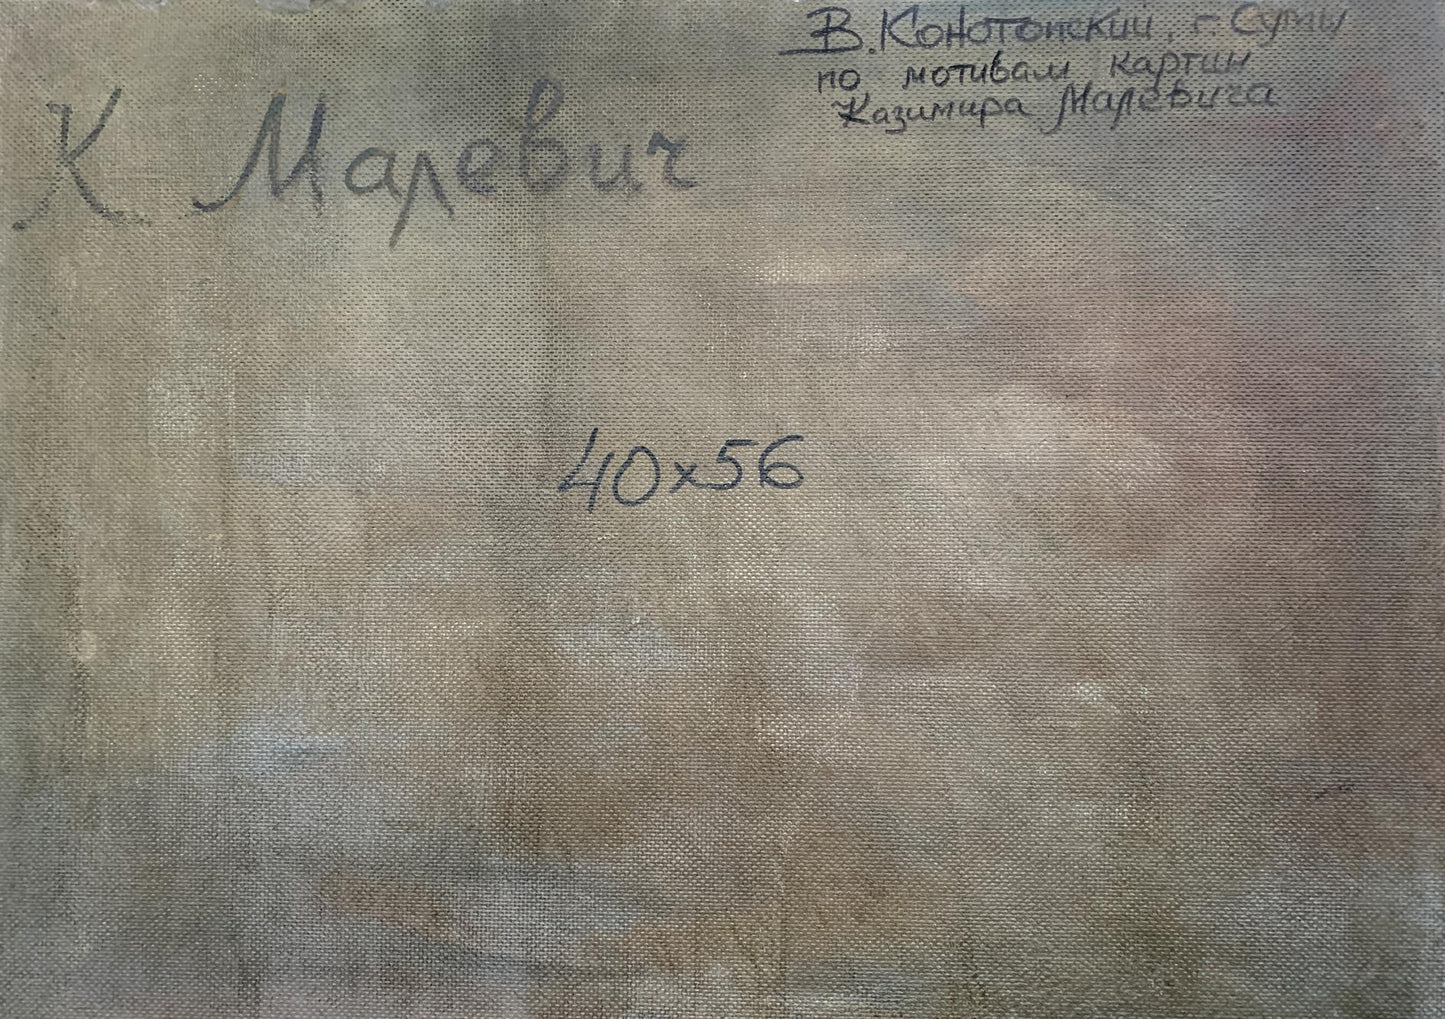 В. Конотопский, г. Сумы
по мотивам картин
Казимира Малевича
К Малевич
40x56